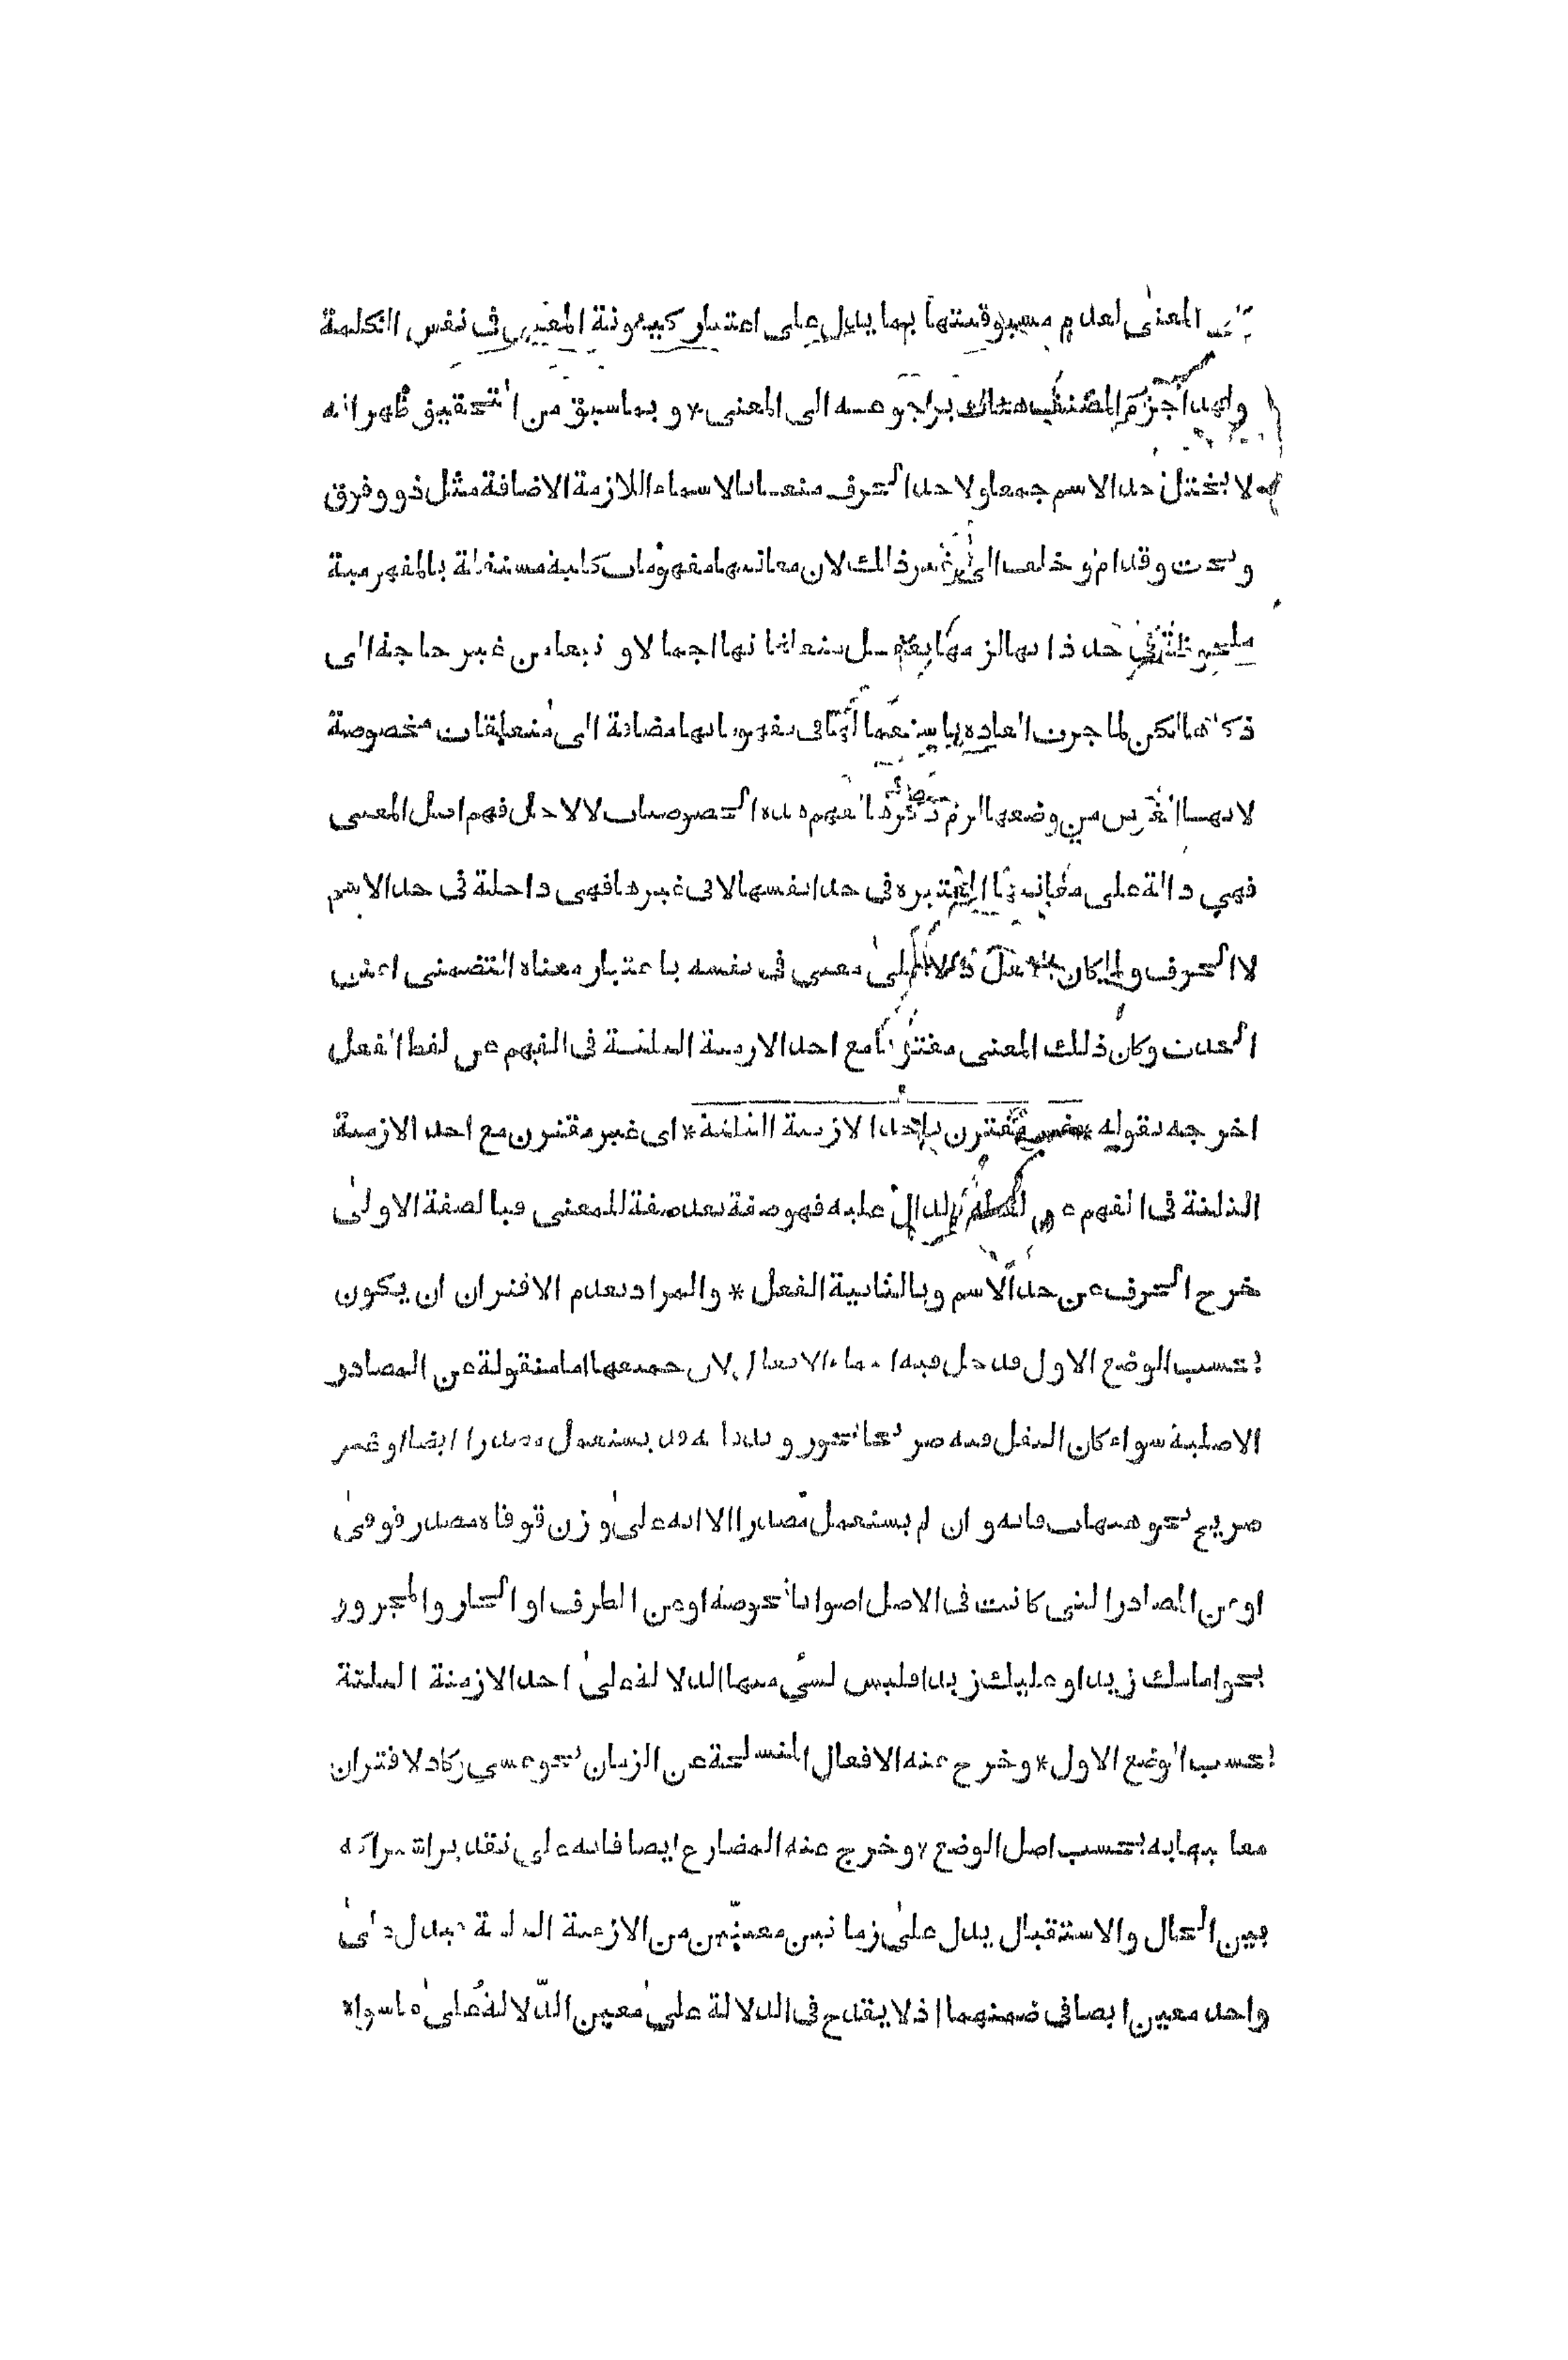 المعنى لعدم مسبوقيتها بما يدل على اعتبار كينونة المعنى في نفس الكلمة
ولهذا جزم المصنف هناك برجوعه الى المعنى * و بما سبق من التحقيق ظهر انه
لا يختل حد الاسم جمعا ولا حد الحرف منعا بالاسماء اللازمة الاضافة مثل ذو وفوق
وتحت وقدام وخلف الى غير ذلك لان معانيها مفهومات كلية مستقلة بالمفهومية
ملحوظة في حد ذاتها لزمها تعقل متعلقاتها اجمالا و تبعا من غير حاجة الى
ذكرها لكن لما جرت العادة باستعمالها في مفهوماتها مضافة الى متعلقات مخصوصة
لانها الغرض من وضعها لزم ذكرها لفهم هذه الخصوصيات لا لاجل فهم اصل المعنى
فهي دالة على معانيها المعتبرة في حد انفسها لا في غيرها فهي داخلة في حد الاسم
لا الحرف ولما كان الفعل دالا على معنى في نفسه باعتبار معناه التضمني اعنى
الحدث وكان ذلك المعنى مقترنا مع احد الازمنة الثلثة في الفهم عن لفظ الفعل
اخرجه بقوله * غير مقترن باحد الازمنة الثلثة * اى غير مقترن مع احد الازمنة
الثلثة في الفهم عن لفظه الدال عليه فهو صفة بعد صفة للمعنى فبا لصفة الاولى
خرج الحرف عن حد الاسم وبالثانية الفعل * والمراد بعدم الاقتران ان يكون
بحسب الوضع الاول فدخل فيه اسماء الافعال لان جميعها اما منقولة عن المصادر
الاصلية سواء كان النقل فيه صريحا نحو رويد فانه قد يستعمل مصدرا ايضا او غير
صريح نحو هيهات فانه و ان لم يستعمل مصدرا الا انه على وزن قوقاة مصدر قوقى
او عن المصادر التي كانت في الاصل اصواتا نحو صه او عن الظرف او الجار والمجرور
نحو امامك زيدا وعليك زيدا فليس لشئ منها الدلالة على احد الازمنة الثلثة
بحسب الوضع الاول * وخرج عنه الافعال المنسلخة عن الزمان نحو عسى وكاد لاقتران
معانيها به بحسب اصل الوضع * وخرج عنه المضارع ايضا فانه على تقدير اشتراكه
بين الحال والاستقبال يدل على زمانين معينين من الازمنة الثلثة فيدل على
واحد معين ايضا في ضمنهما اذ لا يقدح في الدلالة على معين الدلالة على ما سواه